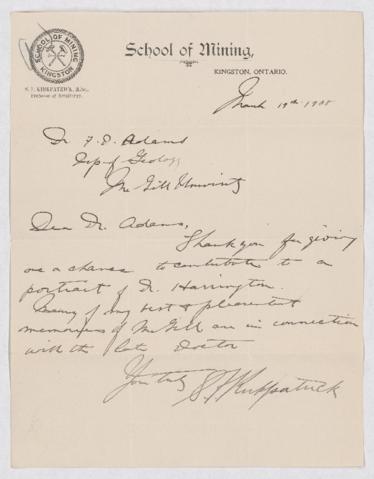 SCHOOL OF MINING
KINGSTON
School of Mining,
KINGSTON, ONTARIO.
S. F. KIRKPATRICK, B.Sc.,
Professor of Metallurgy.
March 19th
Dr. F. D. Adams
Dep. of Geology
McGill University
Dear Dr. Adams,
Thank you for giving
me a chance to contribute to a
portrait of Dr. Harrington.
Many of my best & pleasantest
memories of McGill are in connection
with the late Doctor
Yours truly
S F Kirkpatrick